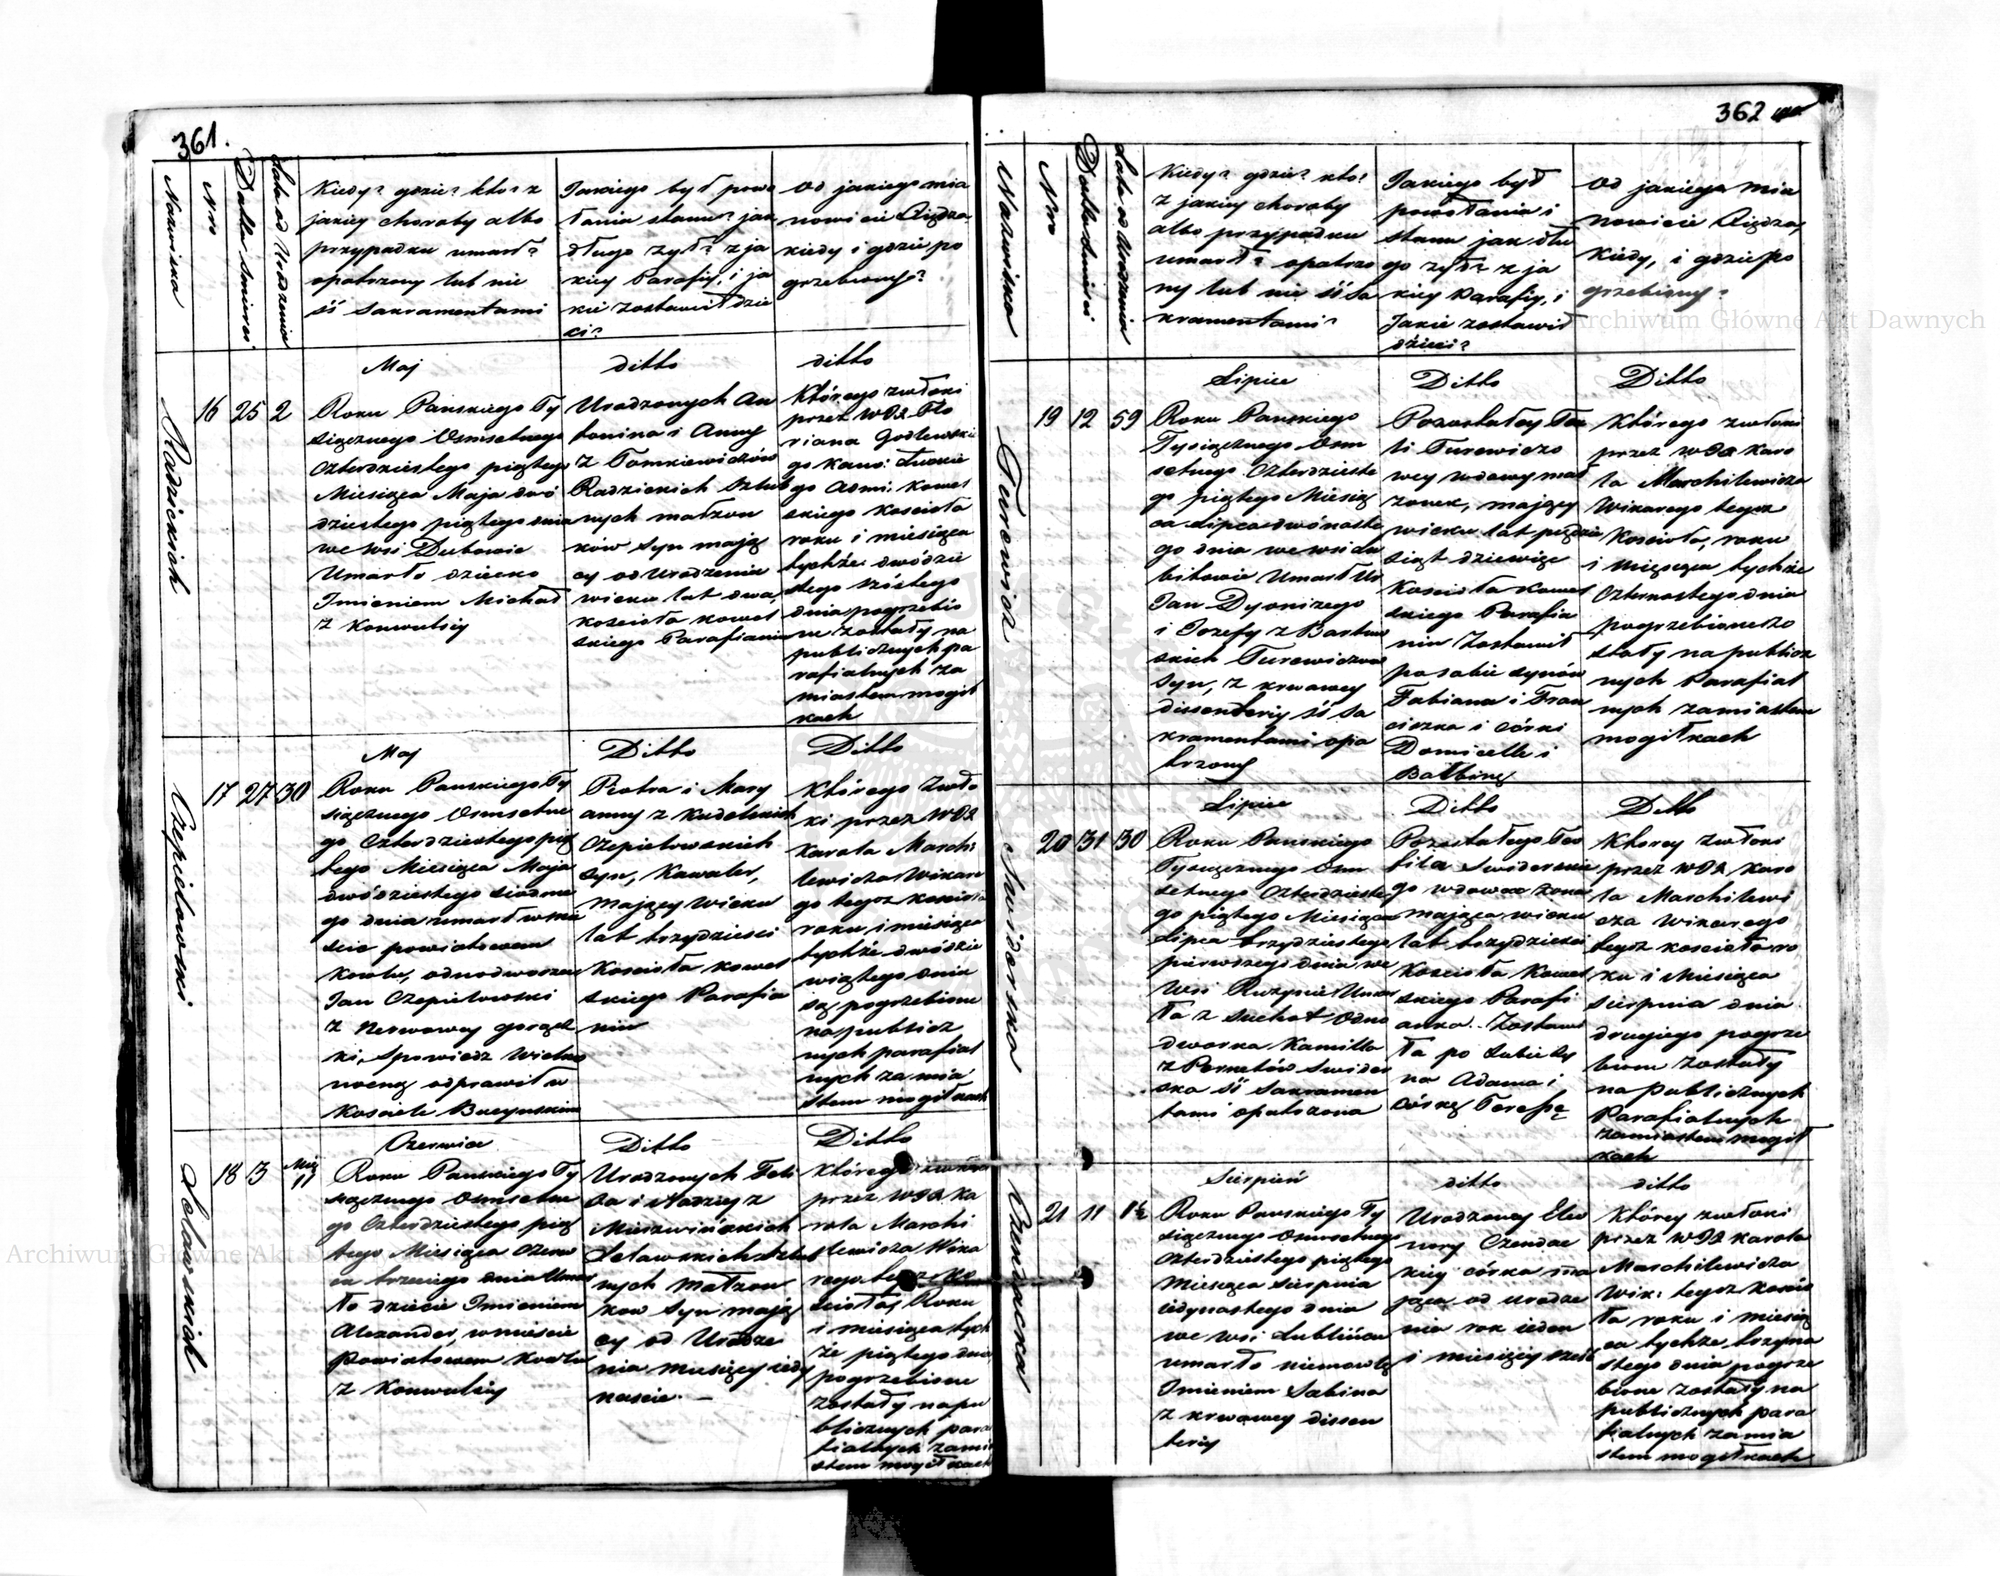 361.
Nazwiska
Nro
Datta Śmierci
Lata od Urodzenia
Kiedy? gdzie? kto? z
jakiey choroby albo
przypadku umarł?
opatrzony lub nie
śś Sakramentami
Jakiego był powo
łania stanu? jak
długo żył? z ja
kiey Parafiy, i ja
kie zostawił dzie
ci?
od jakiego mia
nowicie Xiędza,
kiedy i gdzie po
grzebiony?
Radzickich
16
25
2
Maj
Roku Pańskiego Ty
siącznego Osmsetnego
Czterdziestego piątego
Miesiąca Maja dwó
dziestego piątego dnia
we wsi Dubowie
Umarło dziecko
Imieniem Michał
z Konwulsiy
ditto
Urodzonych An
tonina i Anny
z Tomkiewiczów
Radzickich Szlub
nych małżon
ków Syn mają
cy od Urodzenia
wieku lat dwa,
kościoła kowel
skiego Parafianin
ditto
Którego zwłoki
przez WJX Flo
riana Godlewskie
go Kano: Łuckie
go Admi: Kowel
skiego kościoła
roku i miesiąca
tychże dwódzie
stego szóstego
dnia pogrzebio
ne zostały na
publicznych pa
rafialnych za
miastem mogił
kach
Czepielowski
17
27
30
Maj
Roku Pańskiego Ty
siącznego Osmsetne
go Czterdziestego pią
tego Miesiąca Maja
dwódziestego siódme
go dnia umarł w mie
ście powiatowem
Kowlu, odnodworzec
Jan Czepielowski
z Nerwowey gorącz
ki, Spowiedz Wielka
nocną odprawił w
Kościele
Ditto
Piotra i Mary
anny z
Czepielowskich
Syn, Kawaler,
Mający Wieku
lat trzydzieści
Kościoła kowel
skiego Parafia
nin
Ditto
Którego Zwło
ki przez WJX
Karola Marchi
lewicza Wikare
go tegoż kościoła
roku i miesiąca
tychże dwódzie
wiątego dnia
są pogrzebione
na publicz
nych parafial
nych za mia
stem mogiłkach
Lelawskich
18
3
Mie
11
Czerwiec
Roku Pańskiego Ty
siącznego Osmsetne
go Czterdziestego pią
tego Miesiąca Czerw
ca trzeciego dnia Umar
ło dziecie Imieniem
Alexander, w mieście
Powiatowem Kowlu
z Konwulsiy
Ditto
Urodzonych Feli
xa i Nadzieji z
Mierzwińskich
Lelawskich Szlub
nych Małżon
kow Syn mają
cy od Urodze
nia miesięcy iedy
naście. —
Ditto
Którego zwłoki
przez WJX Ka
rola Marchi
lewicza Wika
rego tegoż Ko
ścioła, Roku
i miesiąca tych
że piątego dnia
pogrzebione
zostały na pu
blicznych para
fialnych zamia
stem mogiłkach
362
Nazwiska
Nro
Datta Śmierci
Lata od Urodzenia
Kiedy? gdzie? kto?
z jakiey choroby
albo przypadku
umarł? opatrzo
ny lub nie śś Sa
kramentami?
Jakiego był
powołania i
stanu jak dłu
go żył? z ja
kiey Parafiy, i
Jakie zostawił
dzieci?
Od jakiego mia
nowicie Xiędza,
Kiedy, i gdzie po
grzebiony?
Turewicz
19
12
59
Lipiec
Roku Pańskiego
Tysiącznego Osm
setnego Czterdzieste
go piątego Miesią
ca Lipca dwónaste
go dnia we wsi Lu
bitowie Umarł Ur
Jan Dyonizego
i Jozefy z Bartow
skich Turewiczow
Syn, z krwawey
dissenteriy śś Sa
kramentami opa
trzony
Ditto
Pozostałey Tek
li Turewiczo
wey wdowy mał
żonek, mający
wieku lat piędzie
siąt dziewięć
Kościoła Kowel
skiego Parafia
nin Zostawił
po sobie synów
Fabiana i Fran
ciszka i córki
Domicelle i
Balbinę
Ditto
Którego zwłoki
przez WJX Karo
la Marchilewicza
Wikarego tegoż
Kościoła, roku
i miesiąca tychże
Czternastego dnia
pogrzebione zo
stały na publicz
nych Parafial
nych zamiastem
mogiłkach
Swiderska
20
31
30
Lipiec
Roku Pańskiego
Tysiącznego Osm
setnego Czterdzieste
go piątego Miesiąca
Lipca trzydziestego
pierwszego dnia we
Wsi Rużynie Umar
ła z Suchot Odno
dworka Kamilla
z Swider
ska śś Sakramen
tami opatrzona
Ditto
Pozostałego Teo
fila Swiderskie
go wdowca żona
mająca wieku
lat trzydzieści
Kościoła Kowel
skiego Parafi
anka. Zostawi
ła po Sobie Sy
na Adama i
córkę Teresę
Ditto
Ktorey zwłoki
przez WJX Karo
la Marchilewi
cza Wikarego
tegoż kościoła ro
ku i Miesiąca
Sierpnia dnia
drugiego pogrze
bione zostały
na publicznych
Parafialnych
zamiastem mogił
kach
Czendacka
21
11
1½
Sierpień
Roku Pańskiego Ty
siącznego Osmsetnego
Czterdziestego piątego
Miesiąca Sierpnia
iedynastego dnia
we wsi Lublińcu
umarło niemowlę
Imieniem Sabina
z krwawey dissen
teriy
ditto
Urodzoney Eleo
nory Czendac
kiey córka ma
jąca od urodze
nia rok ieden
i miesięcy sześć
ditto
Którey zwłoki
przez WJX Karola
Marchilewicza
Wik: tegoż Kościo
ła roku i miesią
ca tychże trzyna
stego dnia pogrze
bione zostały na
publicznych para
fialnych za mia
stem mogiłkach
Archiwum Główne Akt Dawnych
Archiwum Główne Akt Dawnych